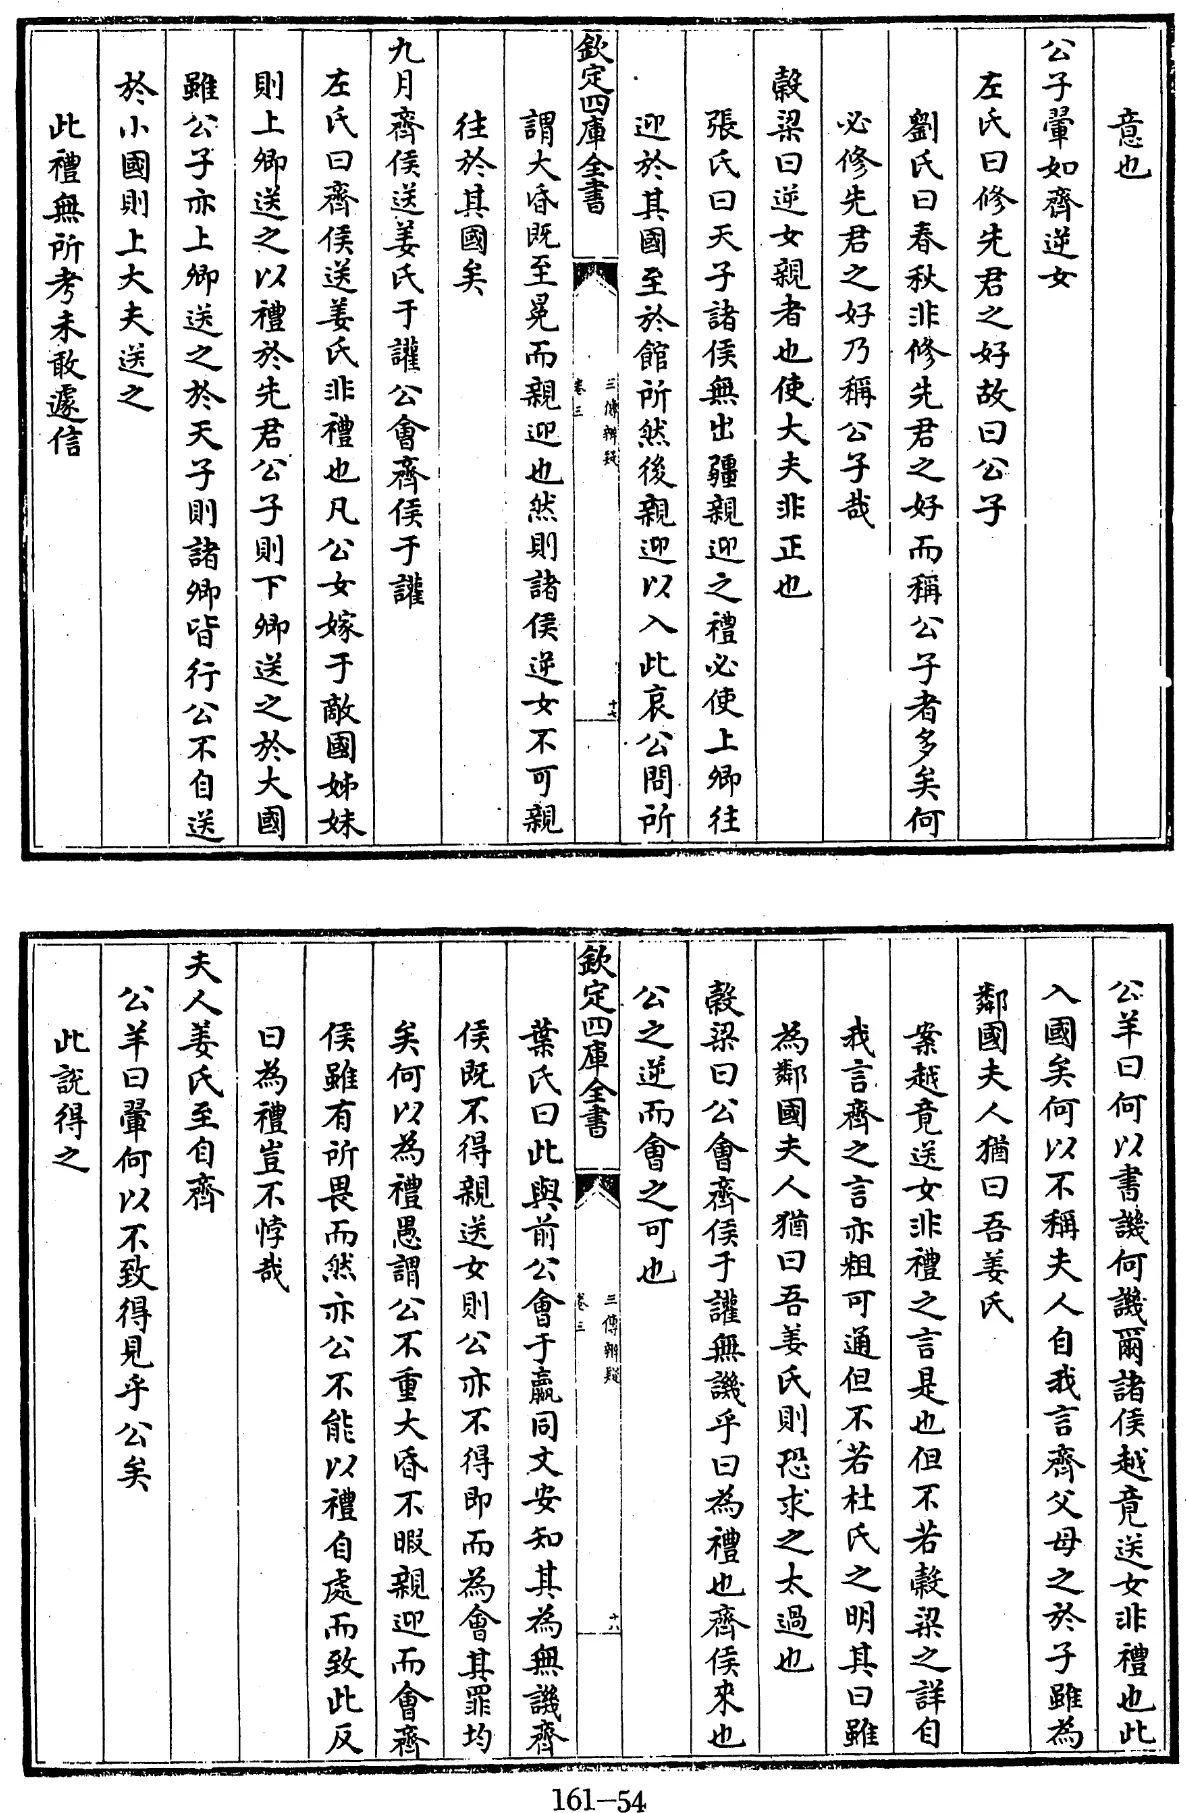 意也
公子翬如齊逆女
左氏曰修先君之好故曰公子
劉氏曰春秋非修先君之好而稱公子者多矣何
必修先君之好乃稱公子哉
穀梁曰逆女親者也使大夫非正也
張氏曰天子諸侯無出疆親迎之禮必使上卿往
迎於其國至於館所然後親迎以入此哀公問所
欽定四庫全書
三傳辨疑
卷三
十七
謂大昏既至冕而親迎也然則諸侯逆女不可親
往於其國矣
九月齊侯送姜氏于讙公會齊侯于讙
左氏曰齊侯送姜氏非禮也凡公女嫁于敵國姊妹
則上卿送之以禮於先君公子則下卿送之於大國
雖公子亦上卿送之於天子則諸卿皆行公不自送
於小國則上大夫送之
此禮無所考未敢遽信
公羊曰何以書譏何譏爾諸侯越竟送女非禮也此
入國矣何以不稱夫人自我言齊父母之於子雖為
鄰國夫人猶曰吾姜氏
案越竟送女非禮之言是也但不若穀梁之詳自
我言齊之言亦粗可通但不若杜氏之明其曰雖
為鄰國夫人猶曰吾姜氏則恐求之太過也
穀梁曰公會齊侯于讙無譏乎曰為禮也齊侯來也
公之逆而會之可也
欽定四庫全書
三傳辨疑
卷三
十八
葉氏曰此與前公會于嬴同文安知其為無譏齊
侯既不得親送女則公亦不得即而為會其罪均
矣何以為禮愚謂公不重大昏不暇親迎而會齊
侯雖有所畏而然亦公不能以禮自處而致此反
曰為禮豈不悖哉
夫人姜氏至自齊
公羊曰翬何以不致得見乎公矣
此說得之
161-54